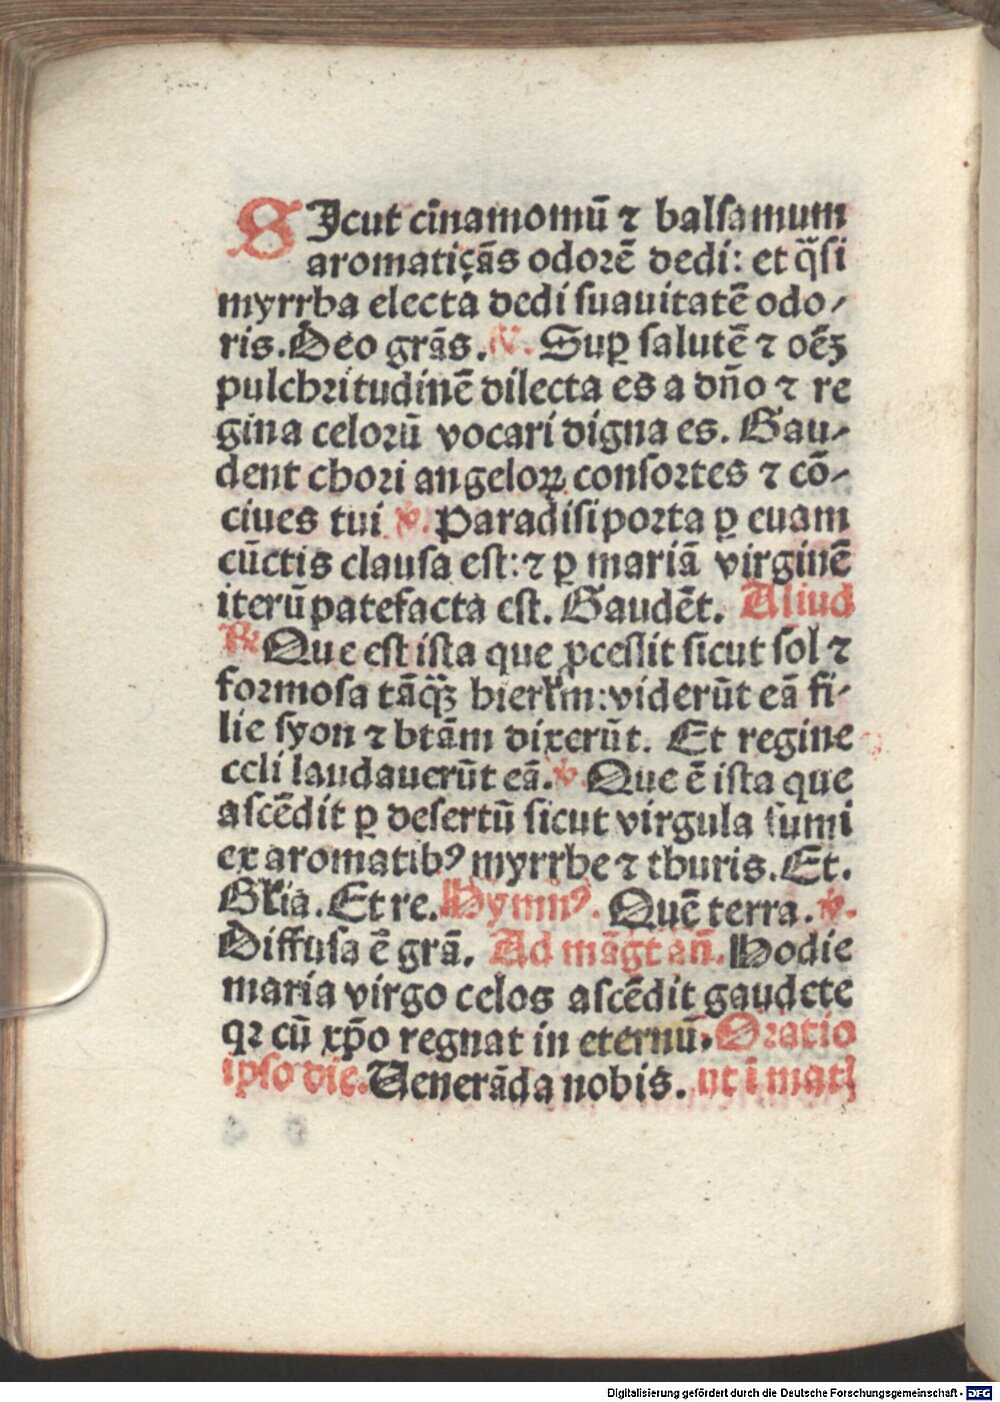 SIcut cīnamomū ⁊ balſamum
aromatiçās odorē dedi: et q̄ſi
myrrha electa dedi ſuauitatē odo⸗
ris. Deo grās. ℟. Suꝑ ſalutē ⁊ oēꝫ
pulchritudinē dilecta es a dn̄o ⁊ re
gina celorū vocari digna es. Gau⸗
dent chori angeloꝝ conſortes ⁊ cō⸗
ciues tui ℣. Paradiſi porta ꝑ euam
cūctis clauſa eſt: ⁊ ꝑ mariā virginē
iterū patefacta eſt. Gaudēt. Aliud
℟ Que eſt iſta que ꝓceſſit ſicut ſol ⁊
formoſa tāq̄ꝫ hierl̄m: viderūt eā fi⸗
lie ſyon ⁊ btām dixerūt. Et regine
celi laudauerūt eā. ℣ Que ē iſta que
aſcēdit ꝑ deſertū ſicut virgula fumi
ex aromatibꝰ myrrhe ⁊ thuris. Et.
Gl̄ia. Et re. Hymnꝰ. Quē terra. ℣.
Diffuſa ē grā. Ad māgt an̄. Hodie
maria virgo celos aſcēdit gaudete
qꝛ cū xp̄o regnat in eternū. Oratio
ipſo die. Uenerāda nobis. ut ī matꝭ
Digitalisierung gefördert durch die Deutsche Forschungsgemeinschaft - DFG